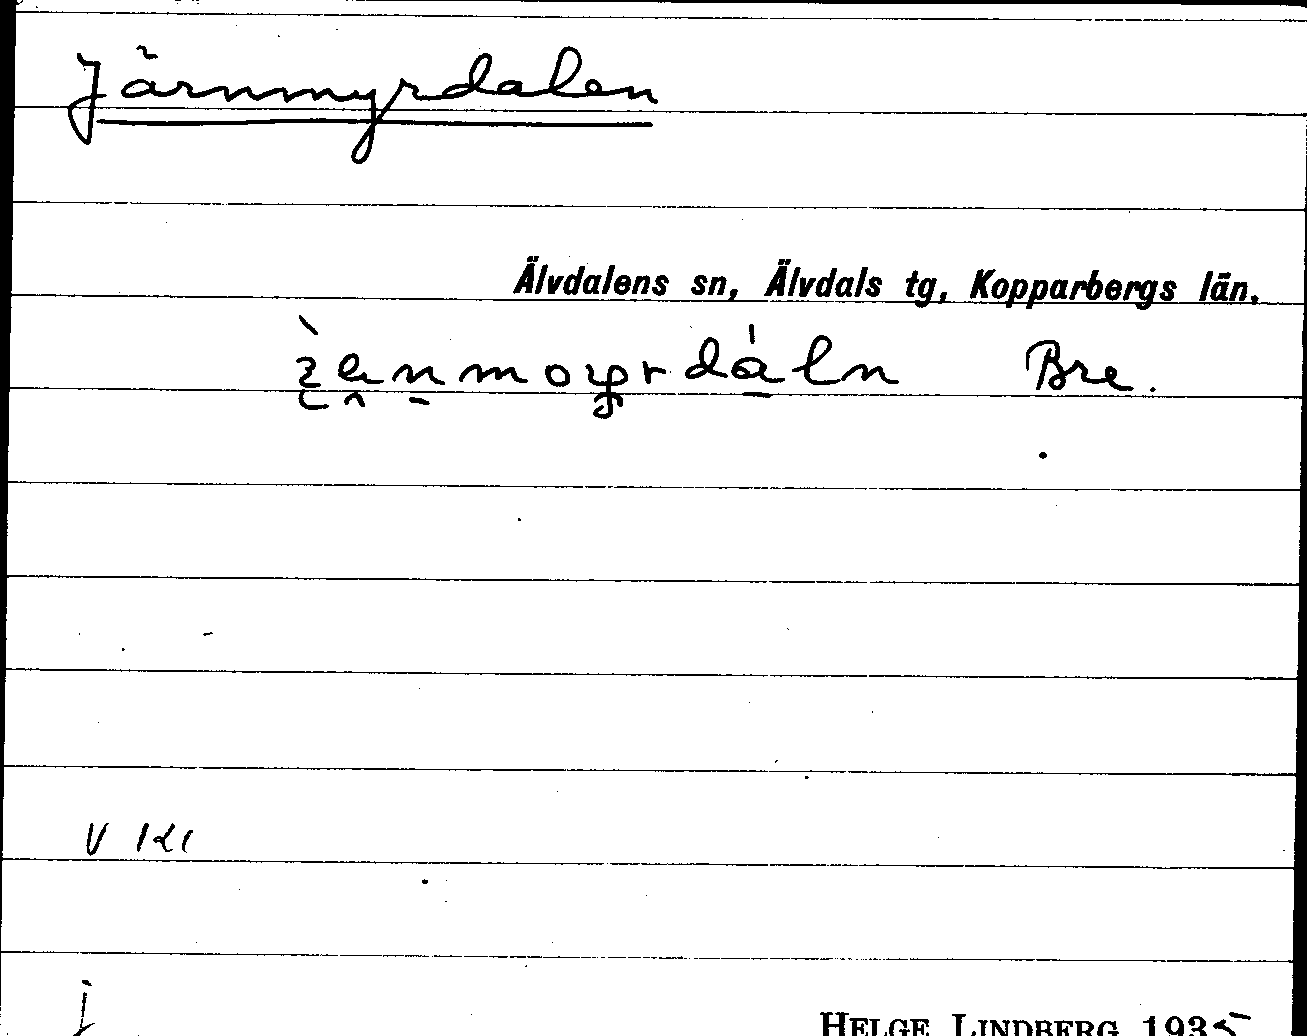 Järnmyrdalen
Älvdalens sn, Älvdals tg, Kopparbergs län.
Bre.
V
j
HELGE LINDBERG 1935